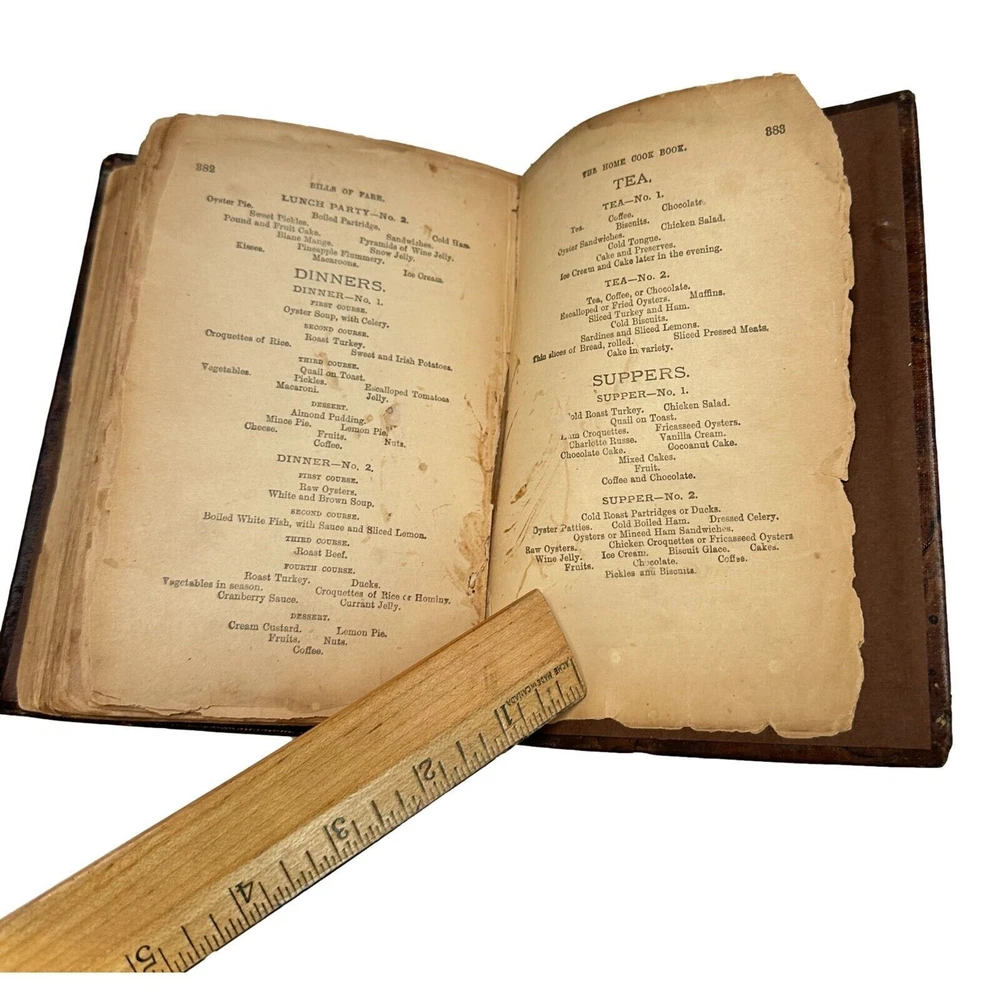 382
BILLS OF FARE.
LUNCH PARTY—No. 2.
Oyster Pie. Boiled Partridge. Cold Ham.
Sweet Pickles. Sandwiches.
Pound and Fruit Cake. Pyramids of Wine Jelly.
Blanc Mange. Snow Jelly.
Kisses. Pineapple Flummery. Ice Cream.
Macaroons.
DINNERS.
DINNER—No. 1.
FIRST COURSE.
Oyster Soup, with Celery.
SECOND COURSE.
Roast Turkey.
Croquettes of Rice. Sweet and Irish Potatoes.
THIRD COURSE.
Quail on Toast.
Vegetables. Pickles. Escalloped Tomatoes
Macaroni. Jelly.
DESSERT.
Almond Pudding.
Mince Pie. Lemon Pie.
Cheese. Fruits. Nuts.
Coffee.
DINNER—No. 2.
FIRST COURSE.
Raw Oysters.
White and Brown Soup.
SECOND COURSE.
Boiled White Fish, with Sauce and Sliced Lemon.
THIRD COURSE.
Roast Beef.
FOURTH COURSE.
Roast Turkey. Ducks.
Vegetables in season. Croquettes of Rice or Hominy.
Cranberry Sauce. Currant Jelly.
DESSERT.
Cream Custard. Lemon Pie.
Fruits. Nuts.
Coffee.
THE HOME COOK BOOK. 383
TEA.
TEA—No. 1.
Tea. Coffee. Chocolate.
Biscuits.
Oyster Sandwiches. Chicken Salad.
Cold Tongue.
Cake and Preserves.
Ice Cream and Cake later in the evening.
TEA—No. 2.
Tea, Coffee, or Chocolate.
Escalloped or Fried Oysters. Muffins.
Sliced Turkey and Ham.
Cold Biscuits.
Sardines and Sliced Lemons.
Thin slices of Bread, rolled. Sliced Pressed Meats.
Cake in variety.
SUPPERS.
SUPPER—No. 1.
Cold Roast Turkey. Chicken Salad.
Quail on Toast.
Ham Croquettes. Fricasseed Oysters.
Charlotte Russe. Vanilla Cream.
Chocolate Cake. Cocoanut Cake.
Mixed Cakes.
Fruit.
Coffee and Chocolate.
SUPPER—No. 2.
Cold Roast Partridges or Ducks.
Oyster Patties. Cold Boiled Ham. Dressed Celery.
Oysters or Minced Ham Sandwiches.
Raw Oysters. Chicken Croquettes or Fricasseed Oysters
Wine Jelly. Ice Cream. Biscuit Glace. Cakes.
Fruits. Chocolate. Coffee.
Pickles and Biscuits.
ACME MADE IN CANADA
1 2 3 4 5